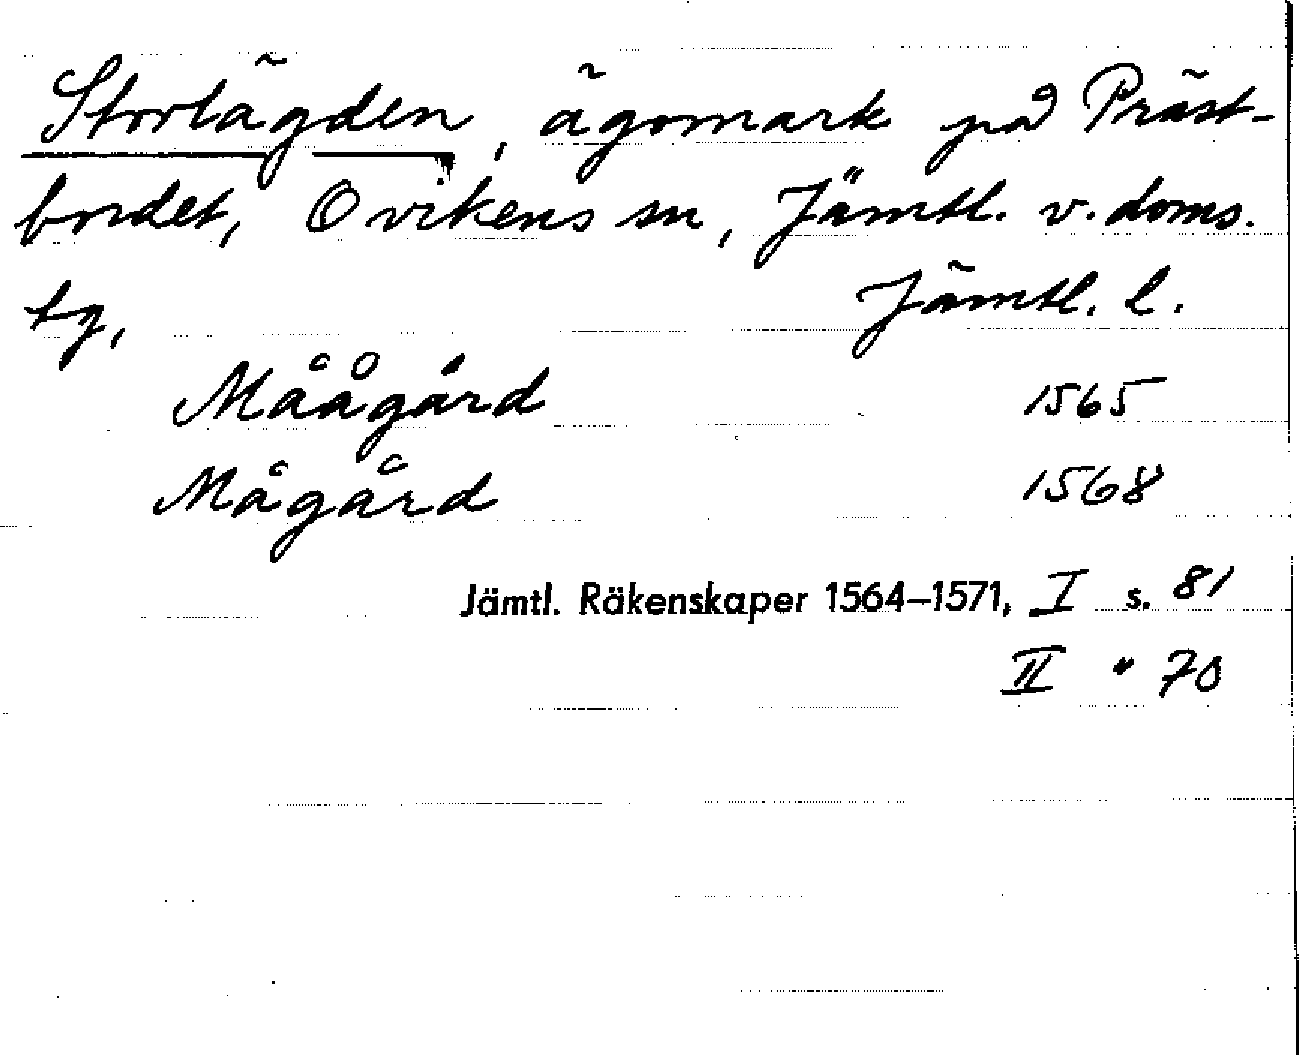 Storlägden, ägomark på Präst-
bordet, Ovikens sn, Jämtl. v. doms.
tg, Jämtl. l.
Måågård 1565
Mågård 1568
Jämtl. Räkenskaper 1564–1571, I s. 81
II " 70